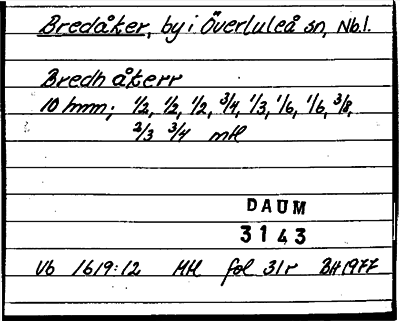 Bredåker, by i Överluleå sn, Nb.l.
Bredh åkerr
10 hmn; 1/2, 1/2, 1/2, 3/4, 1/3, 1/6, 1/6, 3/8,
2/3 3/4 mtl
DAUM
3143
Vb 1619:12 Mtl fol 31r BH 1977